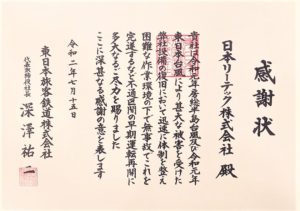 感謝状
日本リーテック株式会社 殿
貴社は令和元年房総半島台風及び令和元年
東日本台風により甚大な被害を受けた
弊社設備の復旧において迅速に体制を整え
困難な作業環境の下で無事故でこれを
完遂するなど不通区間の早期運転再開に
多大なるご尽力を賜りました
ここに深甚なる感謝の意を表します
令和二年七月十五日
東日本旅客鉄道株式会社
代表取締役社長 深澤祐二